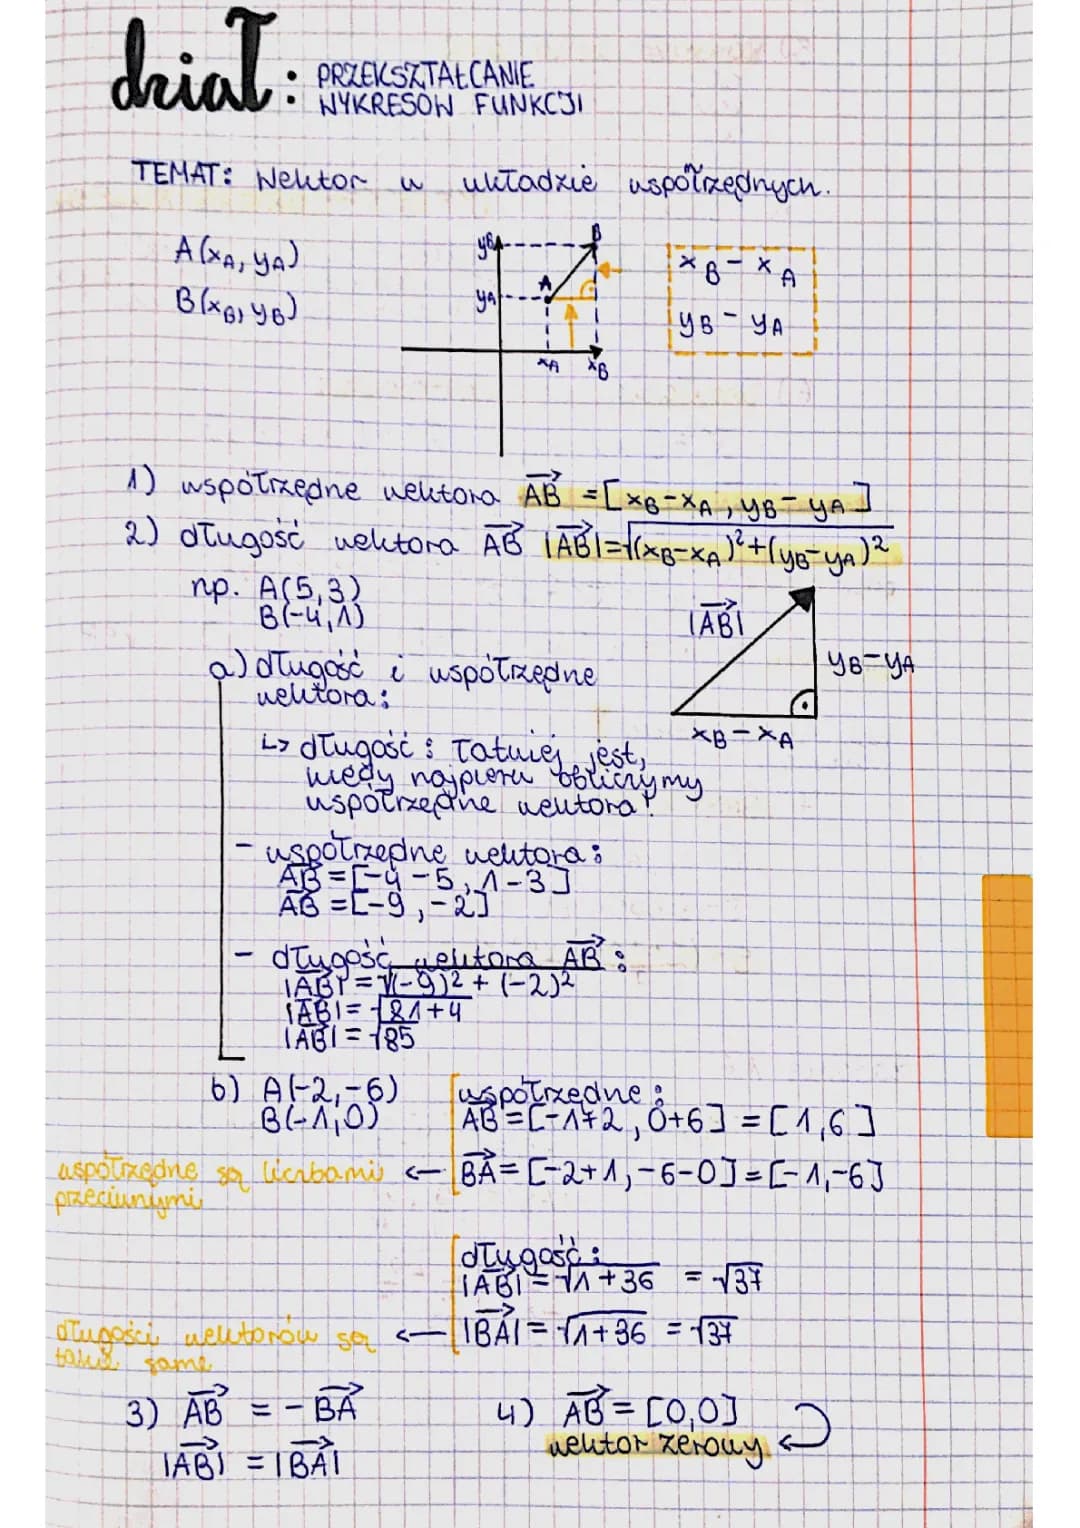 dział: PRZEKSZTAŁCANIE
WYKRESÓW FUNKCJI
TEMAT: Wektor w układzie współrzędnych.
A(xA, yA)
B(xB, yB)
yB
B
yA
A
xA
xB
xB - xA
yB - yA
1) współrzędne wektora AB→ = [xB-xA, yB-yA]
2) długość wektora AB→ |AB→|=√(xB-xA)²+(yB-yA)²
np. A(5,3)
B(-4,1)
|AB→|
yB-yA
xB-xA
a) długość i współrzędne
wektora:
↳ długość: łatwiej jest,
kiedy najpierw obliczymy
współrzędne wektora!
- współrzędne wektora:
AB→=[-4-5, 1-3]
AB→=[-9,-2]
- długość wektora AB→:
|AB→|=√(-9)²+(-2)²
|AB→|=√81+4
|AB→|=√85
b) A(-2,-6)
B(-1,0)
współrzędne:
AB→=[-1+2, 0+6]=[1,6]
współrzędne są liczbami ← BA→=[-2+1,-6-0]=[-1,-6]
przeciwnymi
długość:
|AB→|=√1+36 = √37
długości wektorów są ← |BA→|=√1+36 = √37
takie same
3) AB→ = -BA→
|AB→| = |BA→|
4) AB→=[0,0]
wektor zerowy ←